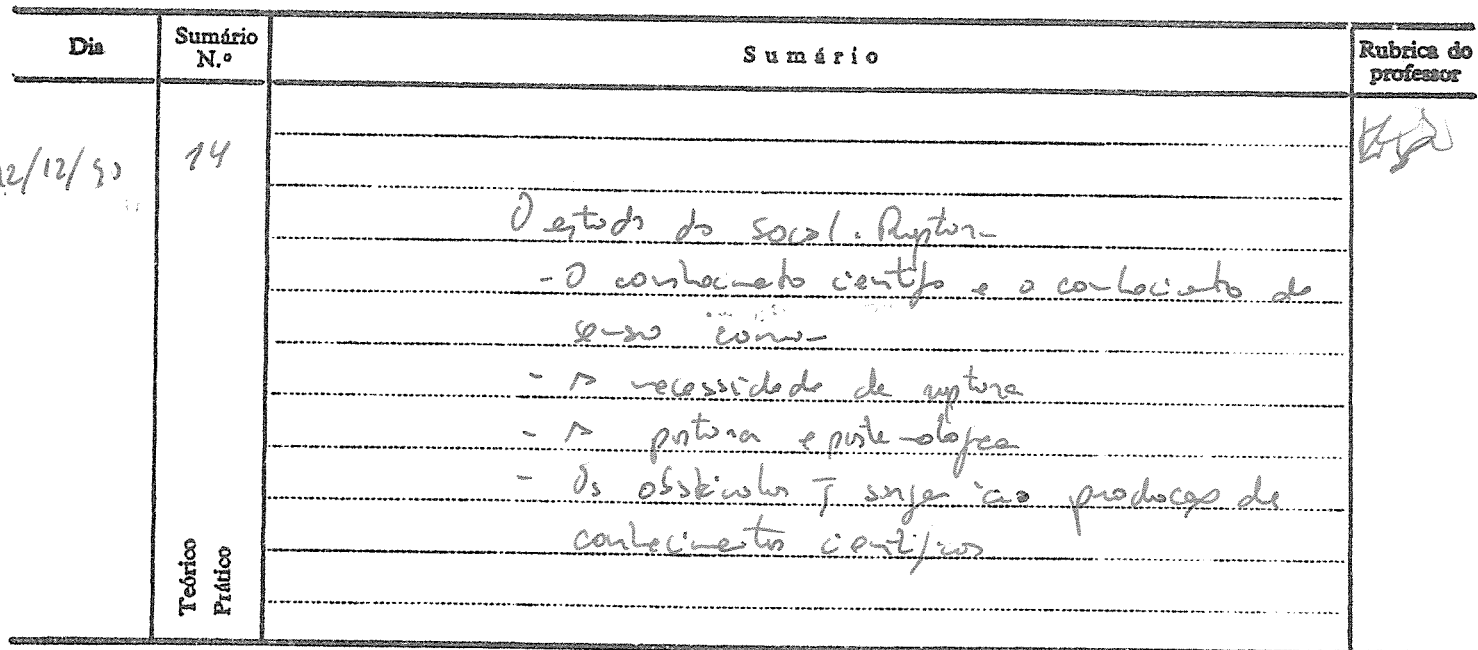 Dia
Sumário N.º
Sumário
Rubrica do professor
12/12/90
14
O estudo do social. Ruptura
- O conhecimento cientifico e o conhecimento de
senso comum
- A necessidade de ruptura
- A epistemologica
- Os obstáculos surgem produção de
conhecimentos cientificos
Teórico
Prático